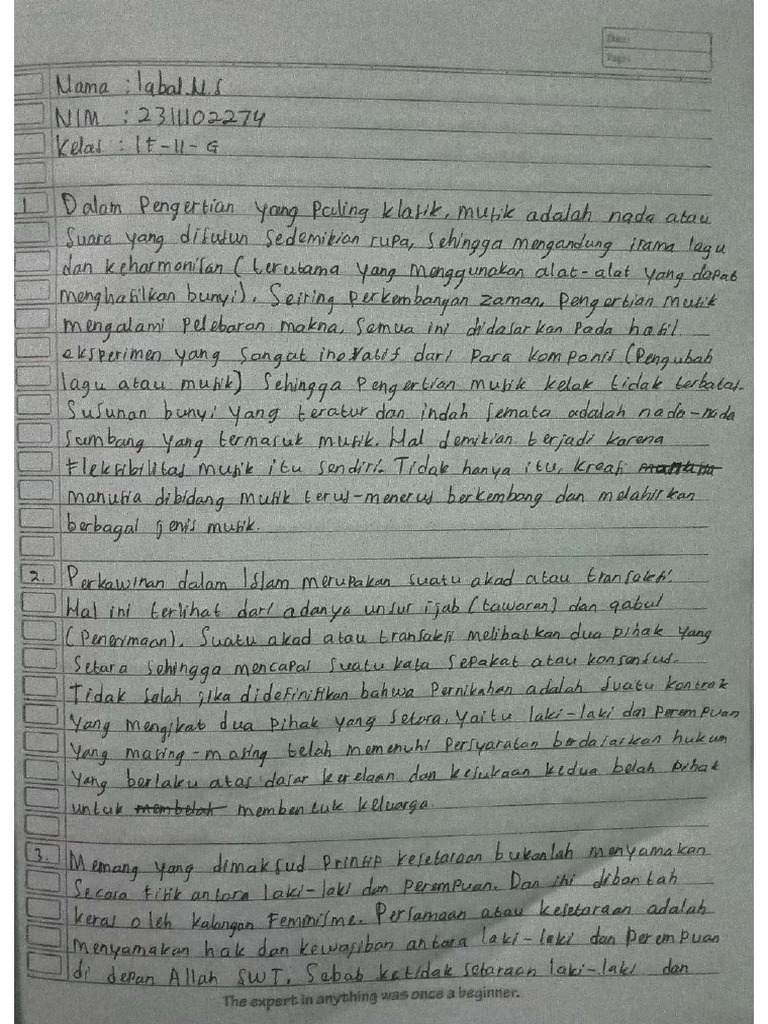 Date:
Page:
Nama : Iqbal.M.S
NIM : 2311102274
Kelas : IF-11-G
1 Dalam Pengertian yang Paling klasik, musik adalah nada atau
Suara yang disusun sedemikian rupa, sehingga mengandung irama lagu
dan keharmonisan (terutama yang menggunakan alat-alat yang dapat
menghasilkan bunyi). Seiring perkembangan zaman, pengertian musik
mengalami pelebaran makna, semua ini didasarkan pada hasil
eksperimen yang sangat inovatif dari para komponis (Pengubah
lagu atau musik) sehingga pengertian musik kelak tidak terbatas.
Susunan bunyi yang teratur dan indah semata adalah nada-nada
sumbang yang termasuk musik. Hal demikian terjadi karena
flektibilitas musik itu sendiri. Tidak hanya itu, kreasi
manusia dibidang musik terus-menerus berkembang dan melahirkan
berbagai jenis musik.
2. Perkawinan dalam Islam merupakan suatu akad atau transaksi.
Hal ini terlihat dari adanya unsur ijab (tawaran) dan qabul
(Penerimaan). Suatu akad atau transaksi melibatkan dua pihak yang
Setara sehingga mencapai suatu kata sepakat atau konsensus.
Tidak salah jika didefinisikan bahwa Pernikahan adalah suatu kontrak
yang mengikat dua pihak yang setara, yaitu laki-laki dan Perempuan
yang masing-masing telah memenuhi Persyaratan berdasarkan hukum
yang berlaku atas dasar kerelaan dan kesukaan kedua belah pihak
untuk membelah membentuk keluarga
3. Memang yang dimaksud prinsip kesetaraan bukanlah menyamakan
Secara fisik antara laki-laki dan perempuan. Dan ini dibantah
keras oleh kalangan Femmisme. Persamaan atau kesetaraan adalah
menyamakan hak dan kewajiban antara laki-laki dan perempuan
di depan Allah SWT. Sebab ketidak setaraan laki-laki dan
The expert in anything was once a beginner.